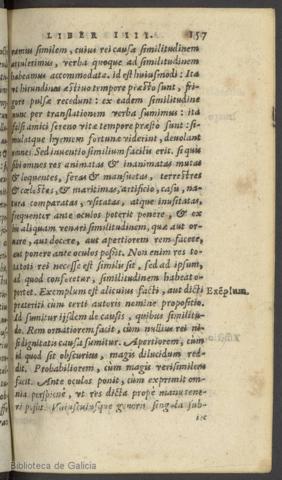 LIBER IIII. 157
remus similem, cuius rei causa similitudinem
attulerimus, verba quoque ad similitudinem
habeamus accommodata. id est huiusmodi: Ita
vt hirundines æstiuo tempore præsto sunt, fri-
gore pulsæ recedunt: ex eadem similitudine
nunc per translationem verba sumimus: ita
falsi amici sereno vitæ tempore præsto sunt: si-
mulatque hyemem fortunæ viderint, deuolant
omnes. Sed inuentio similium facilis erit, si quis
sibi omnes res animatas & inanimatas mutas
& loquentes, feras & mansuetas, terrestres
& cœlestes, & maritimas, artificio, casu, na-
tura comparatas, vsitatas, atque inusitatas,
frequenter ante oculos poterit ponere, & ex
iis aliquam venari similitudinem, quæ aut or-
nare, aut docere, aut apertiorem rem facere,
aut ponere ante oculos possit. Non enim res to-
ta toti rei necesse est similis sit, sed ad ipsum,
ad quod conferetur, similitudinem habeat o-
portet. Exemplum est alicuius facti, aut dicti
Exēplum.
præteriti cum certi autoris nomine propositio.
Id sumitur iisdem de causis, quibus similitu-
do. Rem ornatiorem facit, cùm nullius rei ni-
si dignitatis causa sumitur. Apertiorem, cùm
id quod sit obscurius, magis dilucidum red-
dit. Probabiliorem, cùm magis verisimilem
facit. Ante oculos ponit, cùm exprimit om-
nia perspicuè, vt res dicta propè manu tene-
ri possit. generis singula sub-
Biblioteca de Galicia